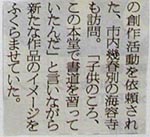 の創作活動を依頼され
た、市内幾春別の海容寺
も訪問。「子供のころ、
この本堂で書道を習って
いたんだ」と言いながら
新たな作品のイメージを
ふくらませていた。